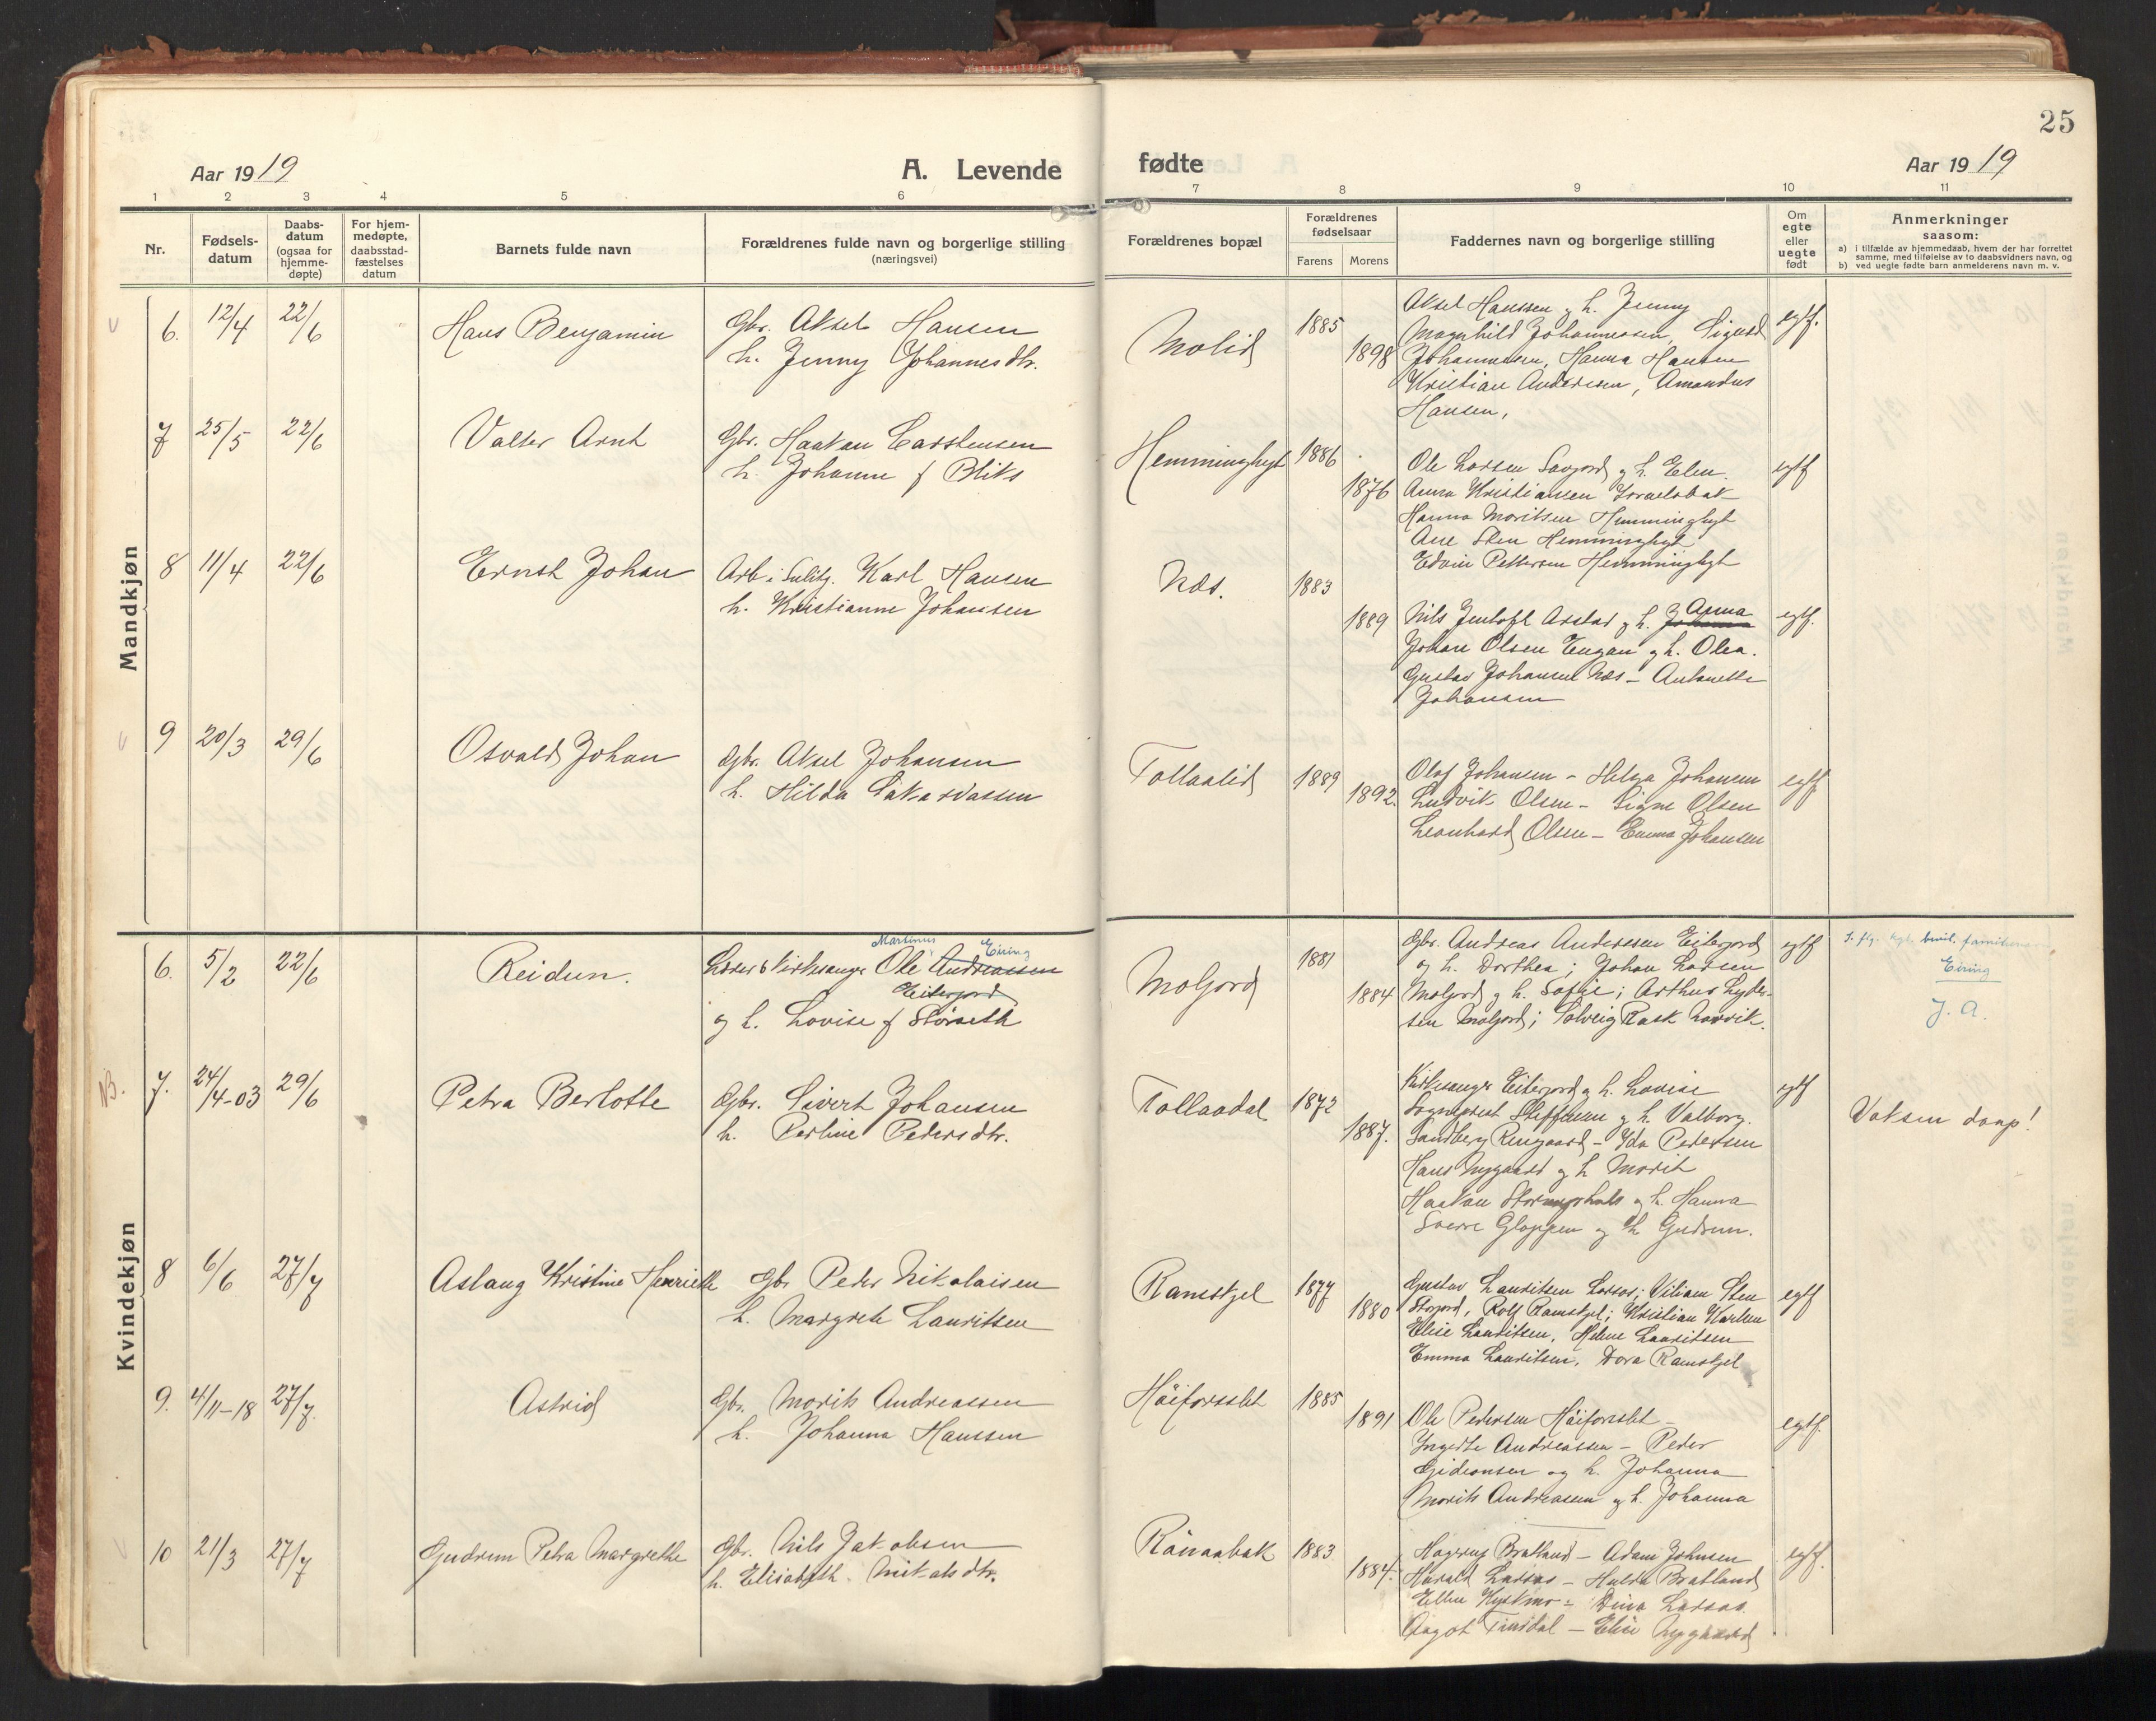 25
Aar 1919
A. Levende fødte
Aar 1919
1 2 3 4 5 6 7 8 9 10 11
Nr.
Fødsels-
datum
Daabs-
datum
(ogsaa for
hjemme-
døpte)
For hjem-
medøpte,
daabsstad-
fæstelses
datum
Barnets fulde navn
Forældrenes fulde navn og borgerlige stilling
(næringsvei)
Forældrenes bopæl
Forældrenes
fødselsaar
Farens Morens
Faddernes navn og borgerlige stilling
Om
egte
eller
uegte
født
Anmerkninger
saasom:
a) i tilfælde av hjemmedaab, hvem der har forrettet
samme, med tilføielse av to daabsvidners navn, og
b) ved uegte fødte barn anmelderens navn m. v.
Mandkjøn
6. 12/4 22/6 Hans Benjamin
Gbr. Aksel Hansen
h. Jenny Johannesdtr.
Molid 1885 1898
Aksel Hanssen og h. Jenny
Magnhild Johannessen, Sigurd
Johannessen, Hanna Hansen
Kristian Andersen, Amandus
Hansen,
egtf.
7 25/5 22/6 Valter Arnt
Gbr. Haakan Carstensen
h. Johanne f Bliks
Hemminghyt 1886 1876
Ole Larsen Savjord og h. Elen.
Anna Kristiansen Israelsbak
Hanna Moritsen Hemminghyt
Ane Sten Hemminghyt
Edvin Pettersen Hemminghyt
egtf
8 11/4 22/6 Ernst Johan
Arb. i Sulitj. Karl Hansen
h. Kristianne Johansen
Næs. 1883 1889
Nils Jentoft Arstad og h. Anna
Johan Olsen Engan og h. Olea.
Gustav Johansen Næs - Antonette
Johansen
egtf.
9 20/3 29/6 Osvald Johan
Gbr. Aksel Johansen
h. Hilda Sakariassen
Tollaalid 1889 1892.
Olaf Johansen - Helga Johansen
Ludvik Olsen - Signe Olsen
Leonhard Olsen - Emma Johansen
egtf
Kvindekjøn
6. 5/2 22/6 Reidun.
Martinus Eiring
Lærer & Kirkesanger Ole Andreassen
Eiterjord
og h. Lovise f Störseth
Moljord 1881 1884
Gbr. Andreas Anderssen Eiterjord
og h. Dorthea; Johan Larsen
Moljord og h. Sofie; Arthur Lyder-
sen Moljord; Solveig Rask Narvik.
egtf
Eiring
J. A.
NB. 7. 24/4-03 29/6 Petra Berlotte
Gbr. Sivert Johansen
h. Perline Pedersdtr.
Tollaadal 1872 1887.
Kirkesanger Eiterjord og h. Lovise
Sogneprest Steffensen og h. Valborg.
Sandberg Rengaard - Ida Pedersen
Hans Nygaard og h Marit
Haakon og h. Hanna
Sverre Gloppen og h Gudrun.
egtf
Voksen daap!
8 6/6 27/7 Aslaug Kristine Henriette
Gbr Peder Nikolaisen
h. Margrete Lauritsen
Ramskjel 1877 1880
Gustav Lauritsen Larsos; Viliam Sten
Storjord, Rolf Ramskjel; Kristian Karlsen
Elise Lauritsen, Helene Lauritsen
Emma Lauritsen, Dora Ramskjel
egtf
9. 4/11-18 27/7. Astrid
Gbr. Morits Andreassen
h. Johanna Hanssen
Höiforsslet 1885 1891
Ole Pedersen Höiforsslet -
Ingerte Andreassen - Peder
Gideonsen og h. Johanna
Morits Andreasen og h. Johanna
egtf.
10 21/3 27/7 Gudrun Petra Margrethe
Gbr. Nils Jakobsen
h. Elisabeth Nikolsdtr.
Rånaabak 1883 1884.
Bratland - Adam Johnsen
Harald Larsos - Hulda Bratland
Ellen - Dina Larsos.
Aagot - Elise Nygaard
egtf.